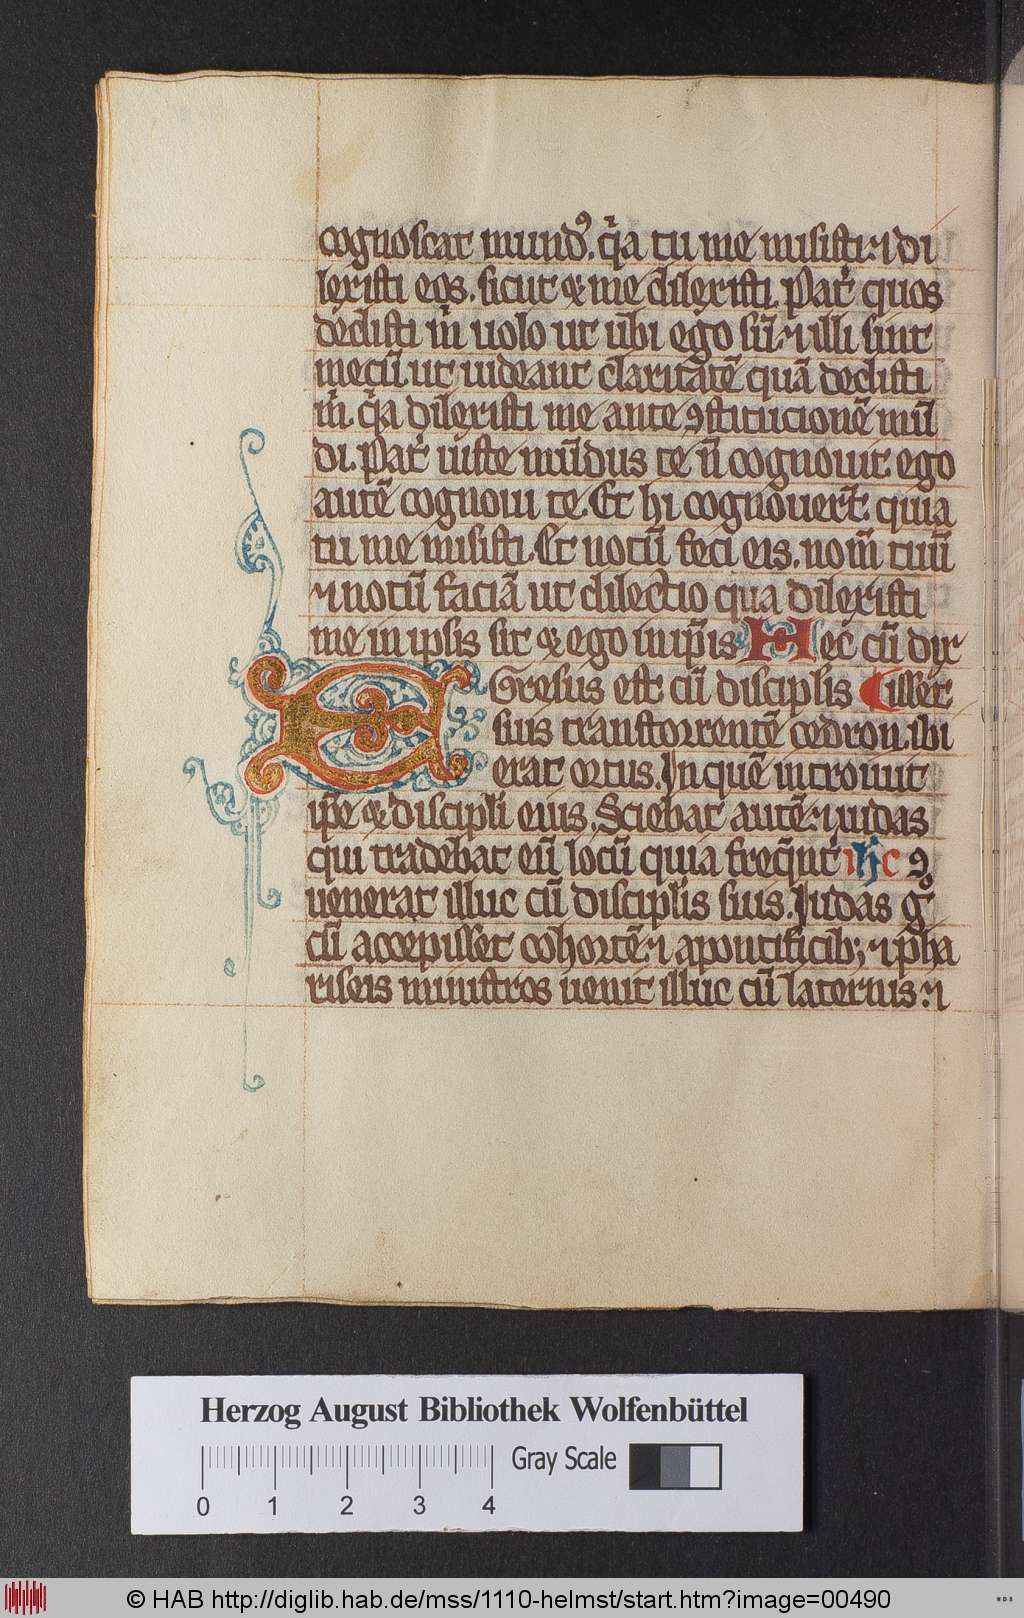 cognoscat mundꝰ. qͥa tu me misisti ⁊ di
lexisti eos. sicut & me dilexisti. Pat͛ quos
dedisti m̍ uolo ut ubi ego sū ⁊ illi sint
mecū. ut uideant claritatē quā dedisti
m̍. qͥa dilexisti me ante ꝯstitucionē mū
di. Pat͛ iuste mūdus te n̄ cognouit. ego
autē cognoui te. Et hi cognouer̄t. quia
tu me misisti. Et notū feci eis. nom̄ tuū
⁊ notū faciā ut dilectio qua dilexisti
me in ipsis sit & ego in ip̄is Hec cū dix
EGresus est cū disciplis isset
suis trans torrentē cedron. ibi
erat ortus. In quē introiuit
ip̄e & discipli eius. Sciebat autē ⁊ iudas
qui tradebat eū locū quia freq̄nt͛ ihc ꝯ
uenerat illuc cū disciplis suis. Iudas gͦ
cū accepisset cohortē ⁊ a pontificib; ⁊ pha
riseis ministros uenit illuc cū laternis ⁊
Herzog August Bibliothek Wolfenbüttel
Gray Scale
0 1 2 3 4
© HAB http://diglib.hab.de/mss/1110-helmst/start.htm?image=00490